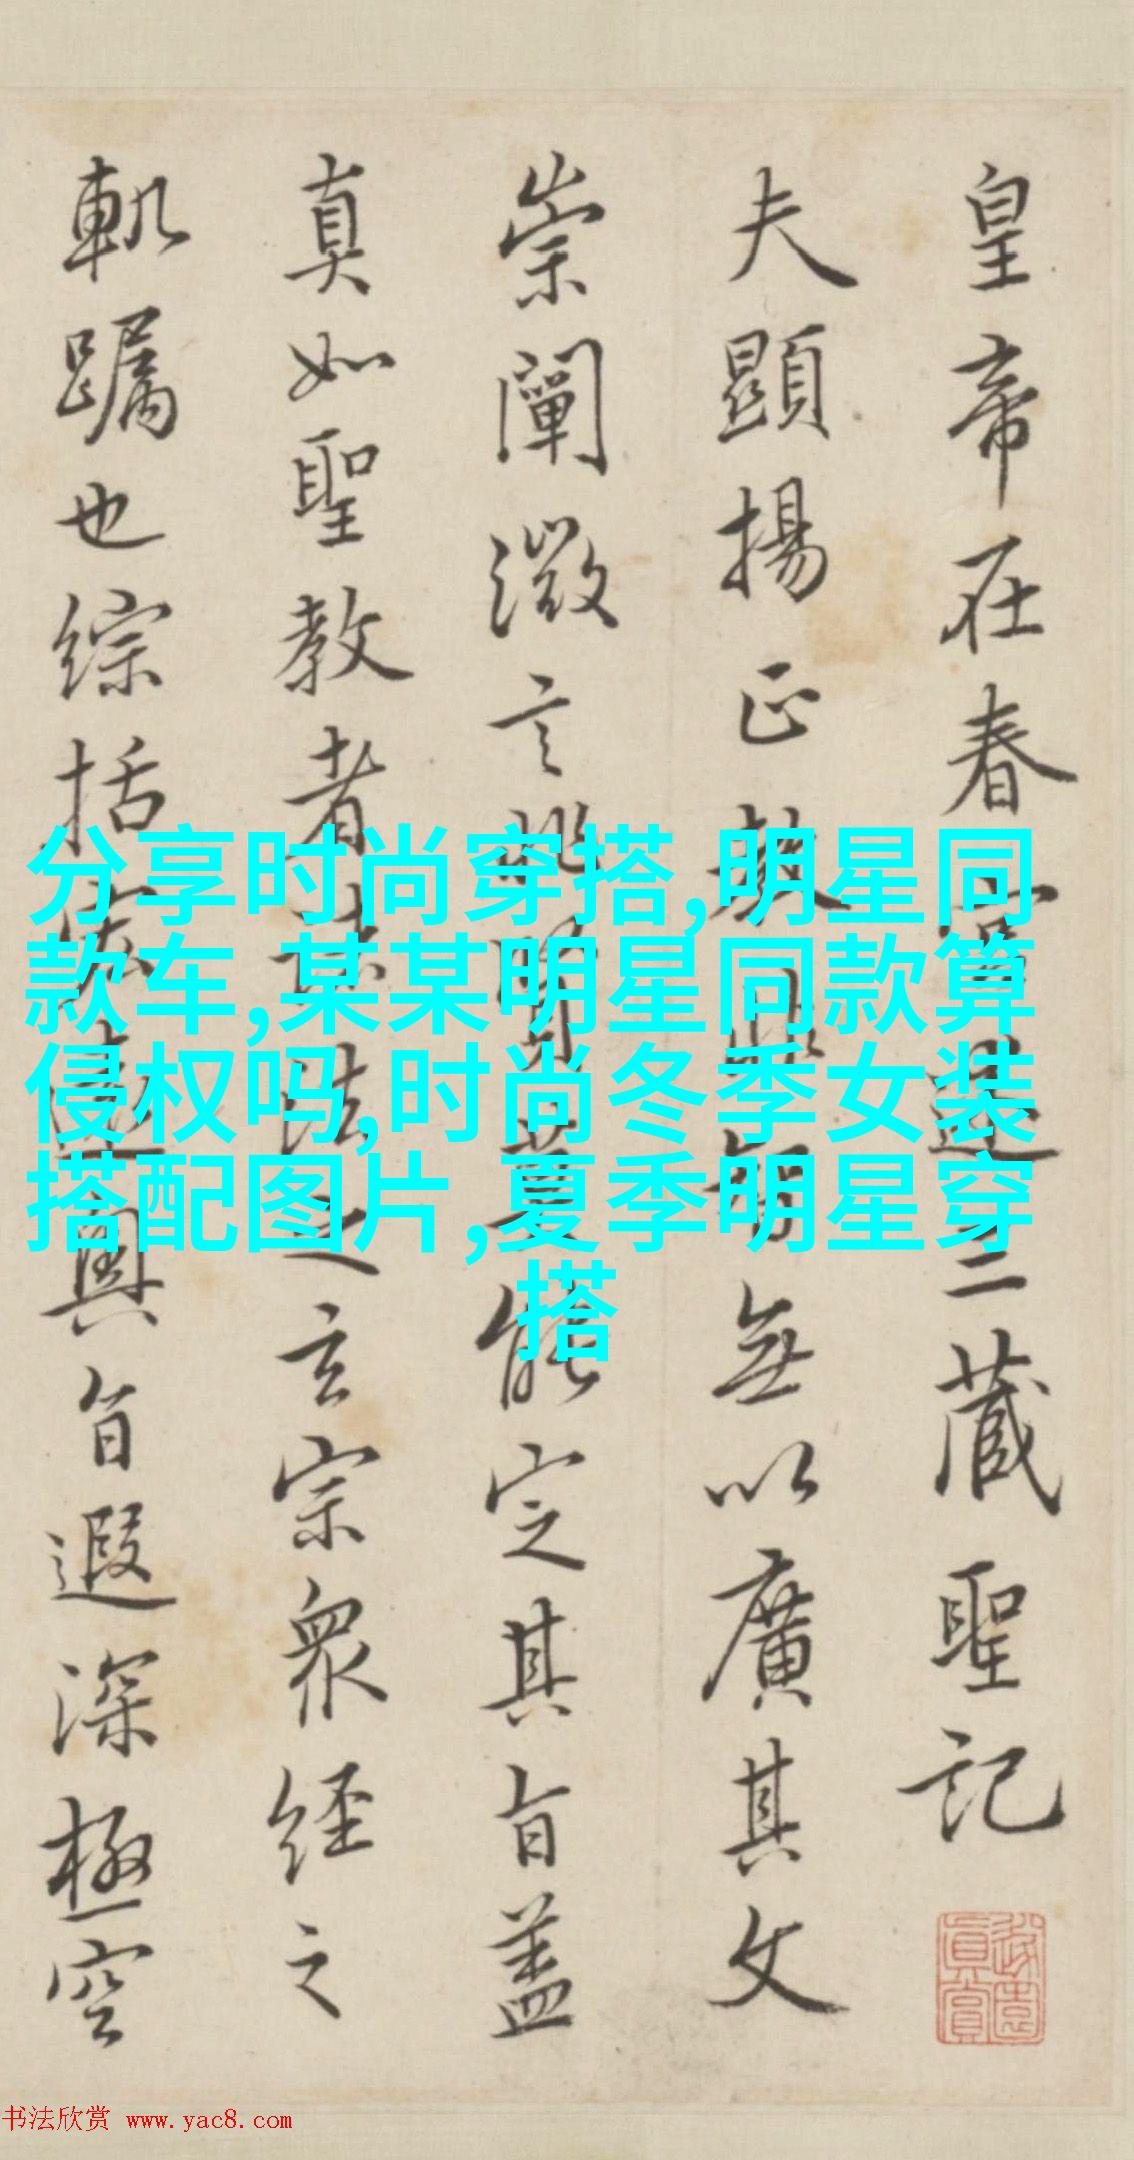 皇帝在春宮述三藏聖記
夫顯揚正教非智無以廣其文
崇闡微言非賢莫能定其旨蓋
真如聖教者諸法之玄宗眾經之
軌躅也綜括宏遠奧旨遐深極空
分享时尚穿搭,明星同
款车,某某明星同款算
侵权吗,时尚冬季女装
搭配图片,夏季明星穿
搭
书法欣赏 www.yac8.com